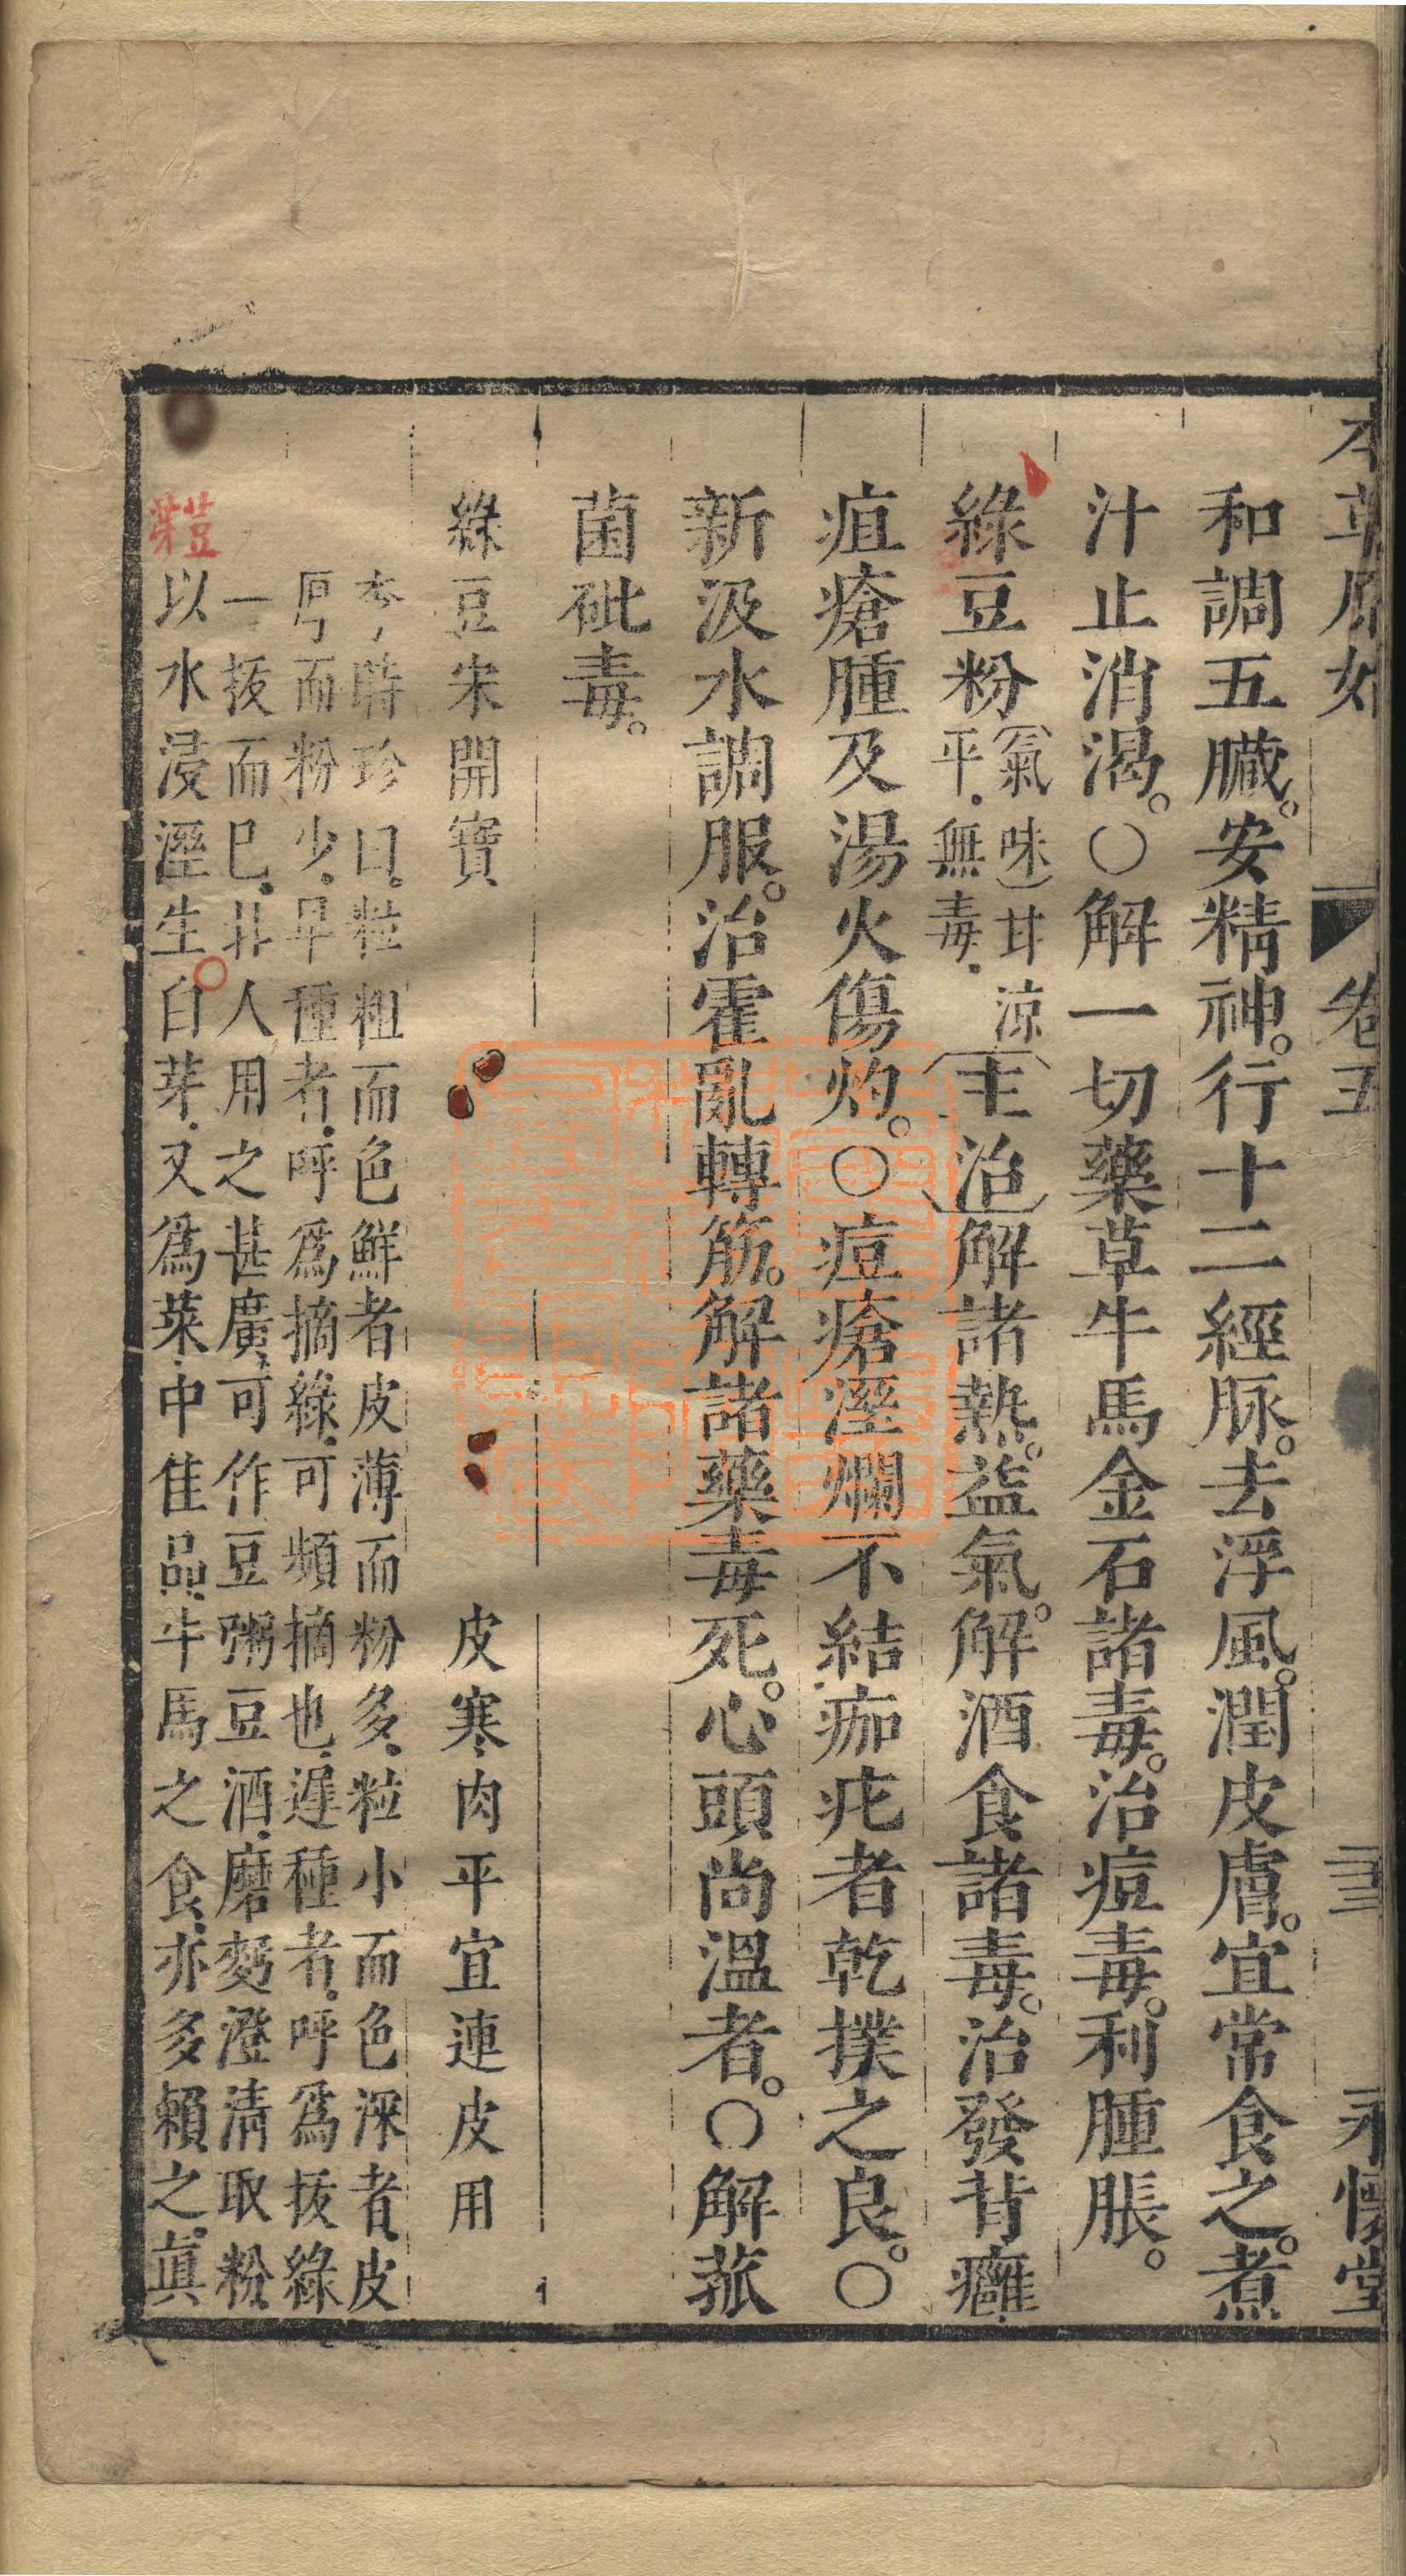 本草原始　卷五　三十三　永懷堂
和調五臟。安精神。行十二經脉。去浮風。潤皮膚。宜常食之。煮
汁止消渴。○解一切藥草牛馬金石諸毒。治痘毒。利腫脹。
綠豆粉（氣味）甘涼平．無毒．（主治）解諸熱。益氣。解酒食諸毒。治發背癰
疽瘡腫及湯火傷灼。○痘瘡溼爛不結痂疕者乾撲之良。○
新汲水調服。治霍亂轉筋。解諸藥毒死。心頭尚溫者。○解菰
菌砒毒。
綠豆宋開寶　皮寒．肉平宜連皮用
李時珍曰。粒粗而色鮮者皮薄而粉多．粒小而色深者．皮
厚而粉少．早種者．呼爲摘綠．可頻摘也．遲種者．呼爲拔綠
一拔而已．北人用之甚廣．可作豆粥豆酒．磨麪澄清取粉
以水浸溼生白芽．又爲菜中佳品．牛馬之食．亦多賴之．眞
荳芽